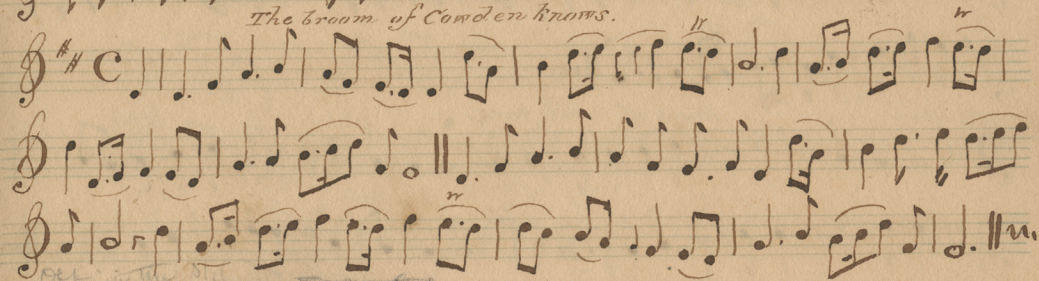 The broom of Cowden knows.
tr
tr
tr